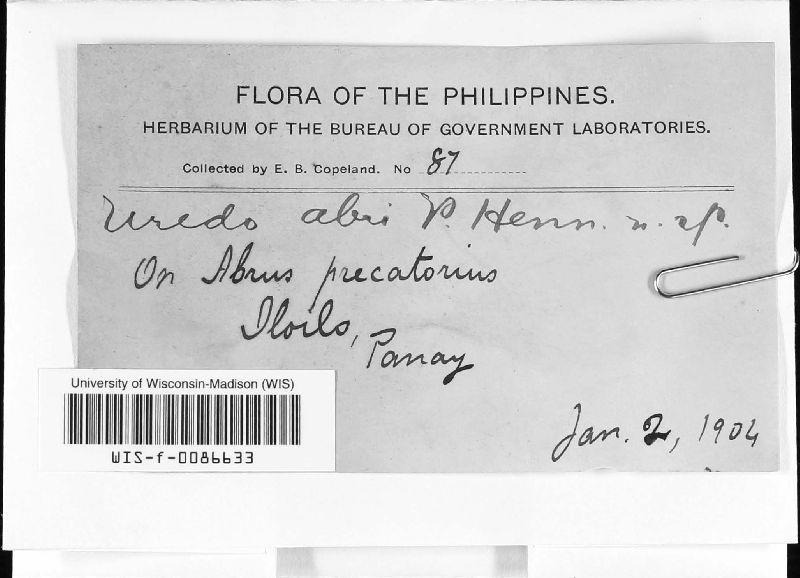 FLORA OF THE PHILIPPINES.
HERBARIUM OF THE BUREAU OF GOVERNMENT LABORATORIES.
Collected by E. B. Copeland. No 87
Uredo abri P. Henn. n. sp.
On Abrus precatorius
Iloilo,
Panay
University of Wisconsin-Madison (WIS)
WIS-f-0086633
Jan. 2, 1904